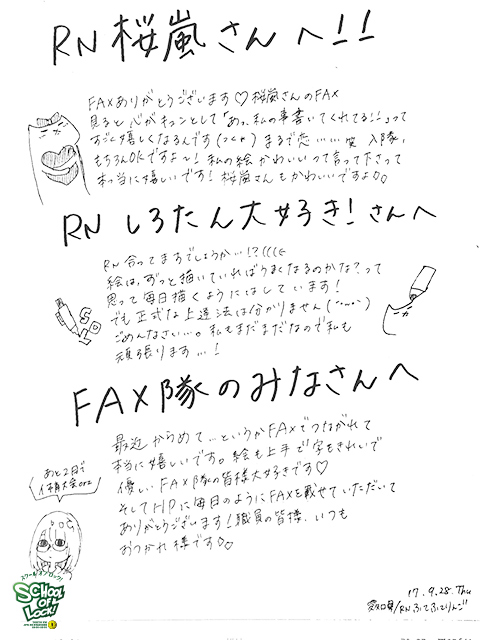 RN 桜嵐さんへ!!
FAXありがとうございます♡桜嵐さんのFAX
見ると心がキュンとして「あっ、私の事書いてくれてる!!」って
すごく嬉しくなるんです(>_<) まるで恋……笑 入隊、
もちろんOKですよ〜! 私の絵かわいいって言って下さって
本当に嬉しいです! 桜嵐さんもかわいいですよ
RN しろたん大好き!さんへ
RN合ってますでしょうか…!?(((
絵は、ずっと描いていればうまくなるのかな?って
思って毎日描くようにはしています!
でも正式な上達法は分かりません
ごめんなさい…。私もまだまだなので私も
頑張ります…!
SOL
FAX隊のみなさんへ
最近からめて…というかFAXでつながれて
本当に嬉しいです。絵も上手で字もきれいで
優しいFAX隊の皆様大好きです♡
そしてHPに毎日のようにFAXを載せていただいて
ありがとうございます!職員の皆様、いつも
おつかれ様です
あと2日で
体育大会orz
スクール・オブ・ロック!
SCHOOL OF LOCK!
17.9.28.Thu
愛知県/RN ふてふてりんご